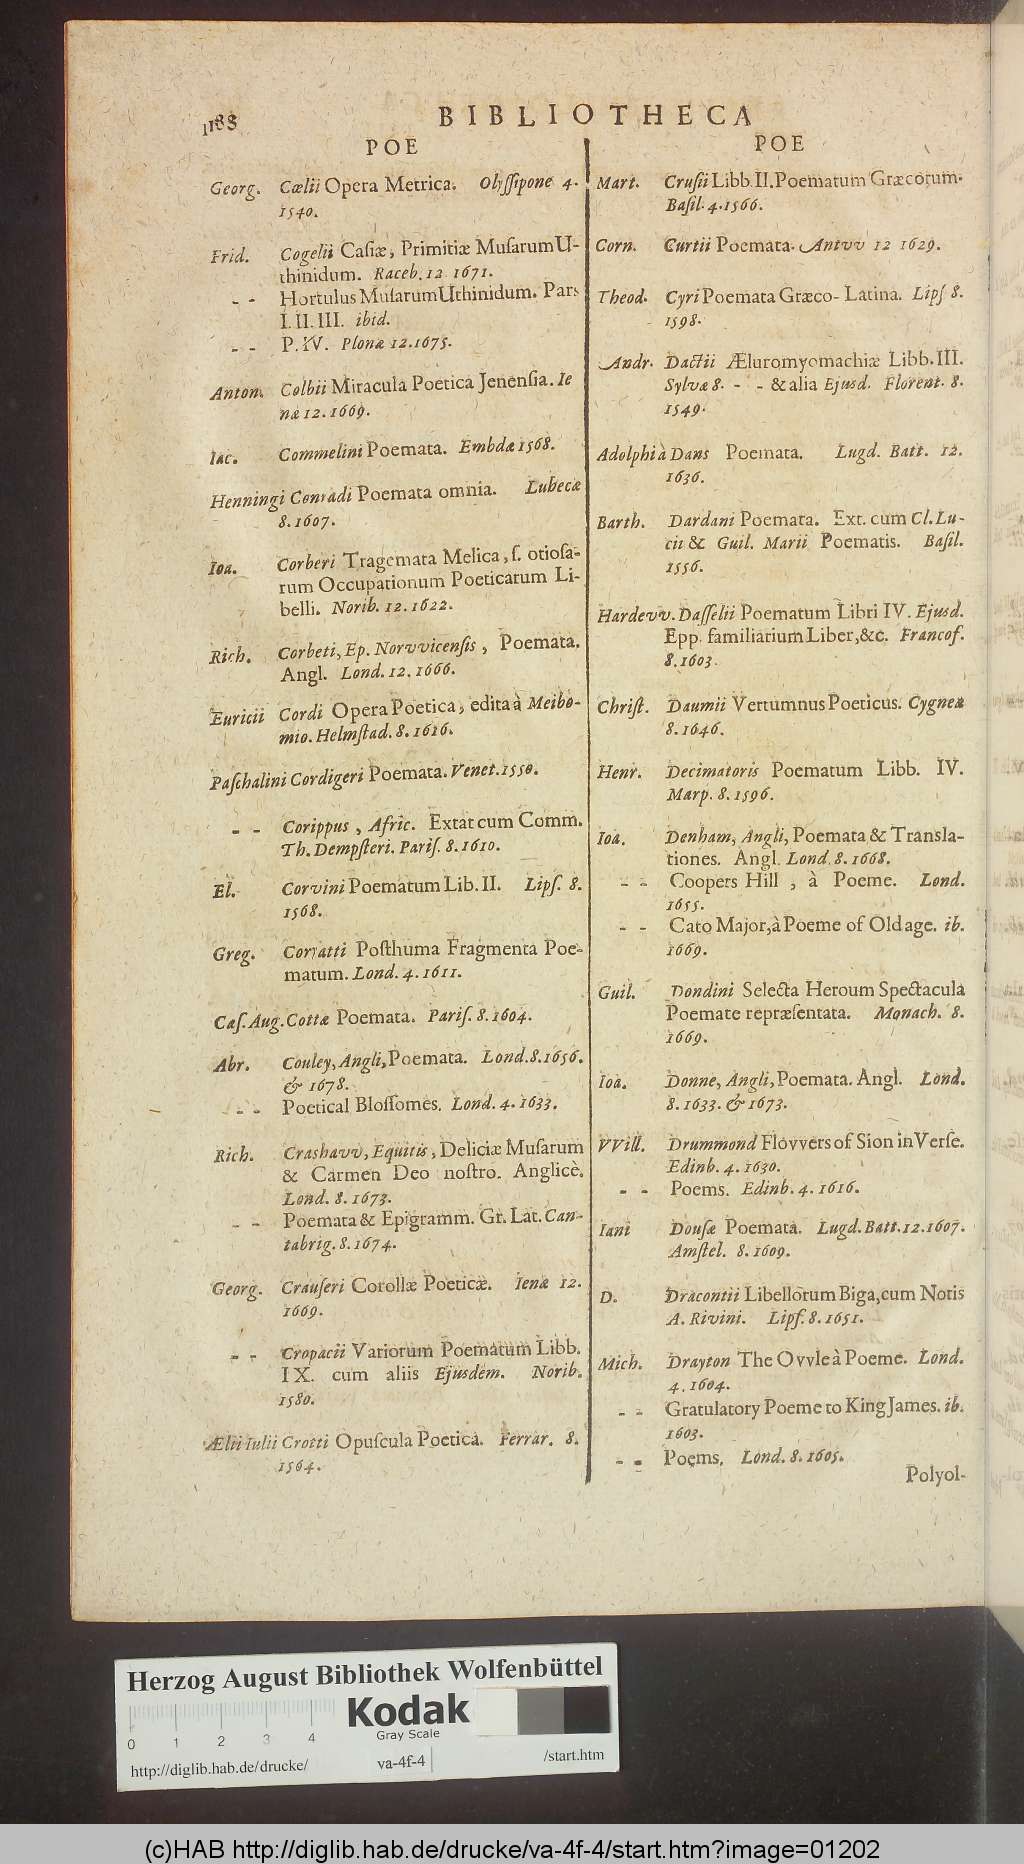 1188
BIBLIOTHECA
POE
Georg. Cœlii Opera Metrica. Olyſſipone 4.
1540.
Frid. Cogelii Caſiæ, Primitiæ Muſarum U-
thinidum. Raceb. 12 1671.
- - Hortulus Muſarum Uthinidum. Pars
I. II. III. ibid.
- - P. IV. Plonæ 12. 1675.
Anton. Colbii Miracula Poetica Jenenſia. Ie
næ 12. 1669.
Iac. Commelini Poemata. Embdæ 1568.
Henningi Conradi Poemata omnia. Lubecæ
8. 1607.
Ioa. Corberi Tragemata Melica, ſ. otioſa-
rum Occupationum Poeticarum Li-
belli. Norib. 12. 1622.
Rich. Corbeti, Ep. Norvvicenſis, Poemata.
Angl. Lond. 12. 1666.
Euricii Cordi Opera Poetica, edita à Meibo-
mio. Helmſtad. 8. 1616.
Paſchalini Cordigeri Poemata. Venet. 1550.
- - Corippus, Afric. Extat cum Comm.
Th. Dempſteri. Pariſ. 8. 1610.
El. Corvini Poematum Lib. II. Lipſ. 8.
1568.
Greg. Corratti Poſthuma Fragmenta Poe-
matum. Lond. 4. 1611.
Caſ. Aug. Cottæ Poemata. Pariſ. 8. 1604.
Abr. Couley, Angli, Poemata. Lond. 8. 1656.
& 1678.
- - Poetical Bloſſomes. Lond. 4. 1633.
Rich. Crashavv, Equitis, Deliciæ Muſarum
& Carmen Deo noſtro. Anglicè.
Lond. 8. 1673.
- - Poemata & Epigramm. Gr. Lat. Can-
tabrig. 8. 1674.
Georg. Crauſeri Corollæ Poeticæ. Ienæ 12.
1669.
- - Cropacii Variorum Poematum Libb.
IX. cum aliis Ejusdem. Norib.
1580.
Ælii Iulii Crotti Opuſcula Poetica. Ferrar. 8.
1564.
POE
Mart. Cruſii Libb. II. Poematum Græcorum.
Baſil. 4. 1566.
Corn. Curtii Poemata. Antvv 12 1629.
Theod. Cyri Poemata Græco-Latina. Lipſ 8.
1598.
Andr. Dactii Æluromyomachiæ Libb. III.
Sylvæ 8. - - & alia Ejusd. Florent. 8.
1549.
Adolphi à Dans Poemata. Lugd. Batt. 12.
1636.
Barth. Dardani Poemata. Ext. cum Cl. Lu-
cii & Guil. Marii Poematis. Baſil.
1556.
Hardevv. Daſſelii Poematum Libri IV. Ejusd.
Epp. familiarium Liber, &c. Francof.
8. 1603.
Chriſt. Daumii Vertumnus Poeticus. Cygneæ
8. 1646.
Henr. Decimatoris Poematum Libb. IV.
Marp. 8. 1596.
Ioa. Denham, Angli, Poemata & Transla-
tiones. Angl. Lond. 8. 1668.
- - Coopers Hill, à Poeme. Lond.
1655.
- - Cato Major, à Poeme of Old age. ib.
1669.
Guil. Dondini Selecta Heroum Spectacula
Poemate repræſentata. Monach. 8.
1669.
Ioa. Donne, Angli, Poemata. Angl. Lond.
8. 1633. & 1673.
VVill. Drummond Flovvers of Sion in Verſe.
Edinb. 4. 1630.
- - Poems. Edinb. 4. 1616.
Iani Douſæ Poemata. Lugd. Batt. 12. 1607.
Amſtel. 8. 1609.
D. Dracontii Libellorum Biga, cum Notis
A. Rivini. Lipſ. 8. 1651.
Mich. Drayton The Ovvle à Poeme. Lond.
4. 1604.
- - Gratulatory Poeme to King James. ib.
1603.
- - Poems. Lond. 8. 1605.
Polyol-
Herzog August Bibliothek Wolfenbüttel
Kodak
Gray Scale
0 1 2 3 4
http://diglib.hab.de/drucke/ va-4f-4 /start.htm
(c)HAB http://diglib.hab.de/drucke/va-4f-4/start.htm?image=01202